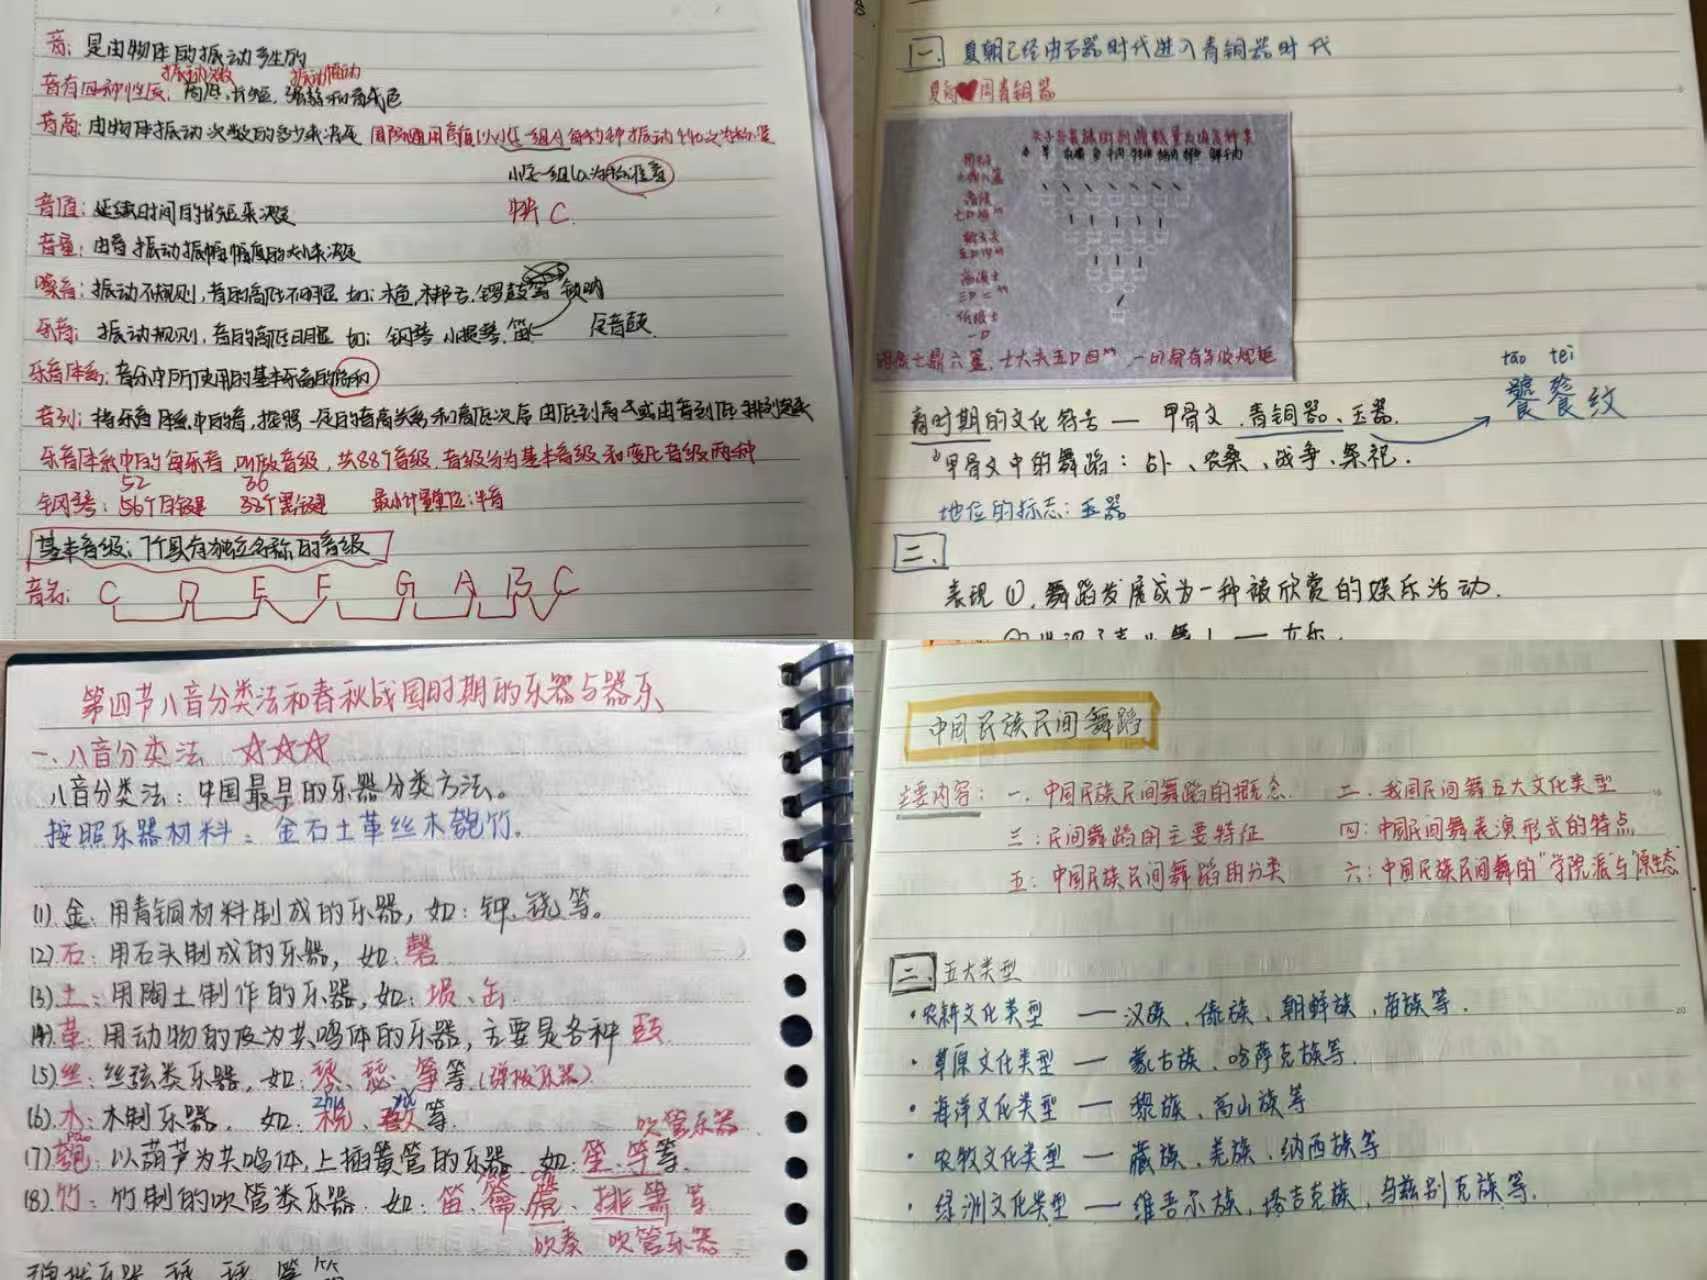 音：是由物体的振动产生的
振动次数 振动幅动
音有四种性质：高低、长短、强弱和音色
音高：由物体振动次数的多少来决定 国际通用高度以小字一组A每秒钟振动440次为标准
小字一组la为标准音
音值：延续时间的长短来决定 中央C
音量：由音振动振幅幅度的大小来决定
噪音：振动不规则，音的高低不明显 如：木鱼、木梆子、锣鼓 唢呐
乐音：振动规则，音的高低明显 如：钢琴 小提琴、笛 定音鼓
乐音体系：音乐中所使用的基本乐音的总和
音列：指乐音体系中的音，按照一定的音高关系和高低次序由低到高或由高到低排列起来
乐音体系中的每乐音，叫做音级，共88个音级，音级分为基本音级和变化音级两种
52 36
钢琴：56个白键 38个黑键 最小计量单位：半音
基本音级：7个具有独立名称的音级
音名：C D E F G A B C
一、夏朝已经由石器时代进入青铜器时代
夏商❤周青铜器
诸侯七鼎六簋，士大夫五口四"
tāo tei
饕餮纹
商时期的文化符号— 甲骨文、青铜器、玉器.
甲骨文中的舞蹈：占卜、农桑、战争、祭祀.
地位的标志：玉器
二、
表现①，舞蹈发展成为一种被欣赏的娱乐活动.
第四节八音分类法和春秋战国时期的乐器与器乐
一、八音分类法 ☆☆☆
八音分类法：中国最早的乐器分类方法。
按照乐器材料：金石土革丝木匏竹。
(1).金：用青铜材料制成的乐器，如：钟、铙等。
(2)石：用石头制成的乐器，如：磬
(3).土：用陶土制作的乐器，如：埙、缶.
(4).革：用动物的皮为共鸣体的乐器，主要是各种鼓.
(5).丝：丝弦类乐器，如：琴、瑟、筝等.(弹拨乐器).
zhu yu
(6).木：木制乐器. 如：柷、敔等.
páo
吹管乐器
(7)匏：以葫芦为共鸣体，上插簧管的乐器 如：笙、竽等.
(8).竹：竹制的吹管类乐器. 如：笛、籥、篪、排箫等
吹奏 吹管乐器
中国民族民间舞蹈
主要内容：一、中国民族民间舞蹈的概念. 二、我国民间舞五大文化类型
三：民间舞蹈的主要特征 四：中国民间舞表演形式的特点
五：中国民族民间舞蹈的分类 六：中国民族民间舞的"学院派"与"原生态"
二、五大类型
·农耕文化类型 — 汉族、傣族、朝鲜族、苗族等.
·草原文化类型 — 蒙古族、哈萨克族等.
·海洋文化类型 — 黎族、高山族等
·农牧文化类型 — 藏族、羌族、纳西族等
·绿洲文化类型 — 维吾尔族、塔吉克族、乌兹别克族等.